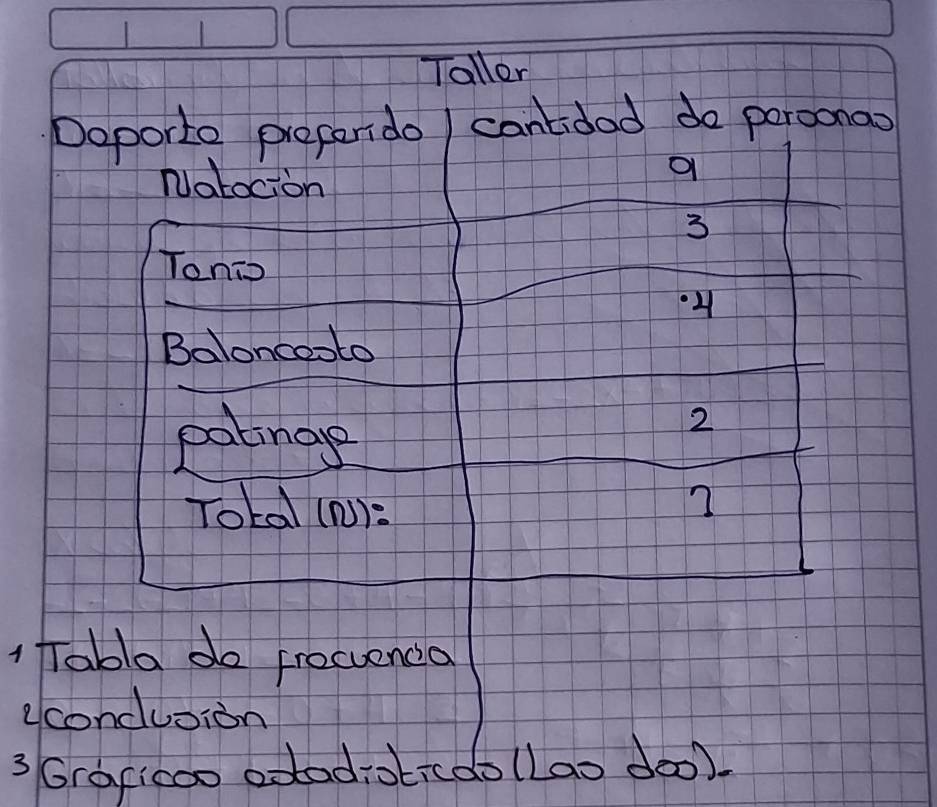 Taller
Deporte preferido | cantidad de personas
Natación 9
Tenis 3
Baloncesto .4
patinaje 2
Total (N): ?
1 Tabla de frecuencia
2 conclusión
3 Gráficos estadísticdo (Las dos).